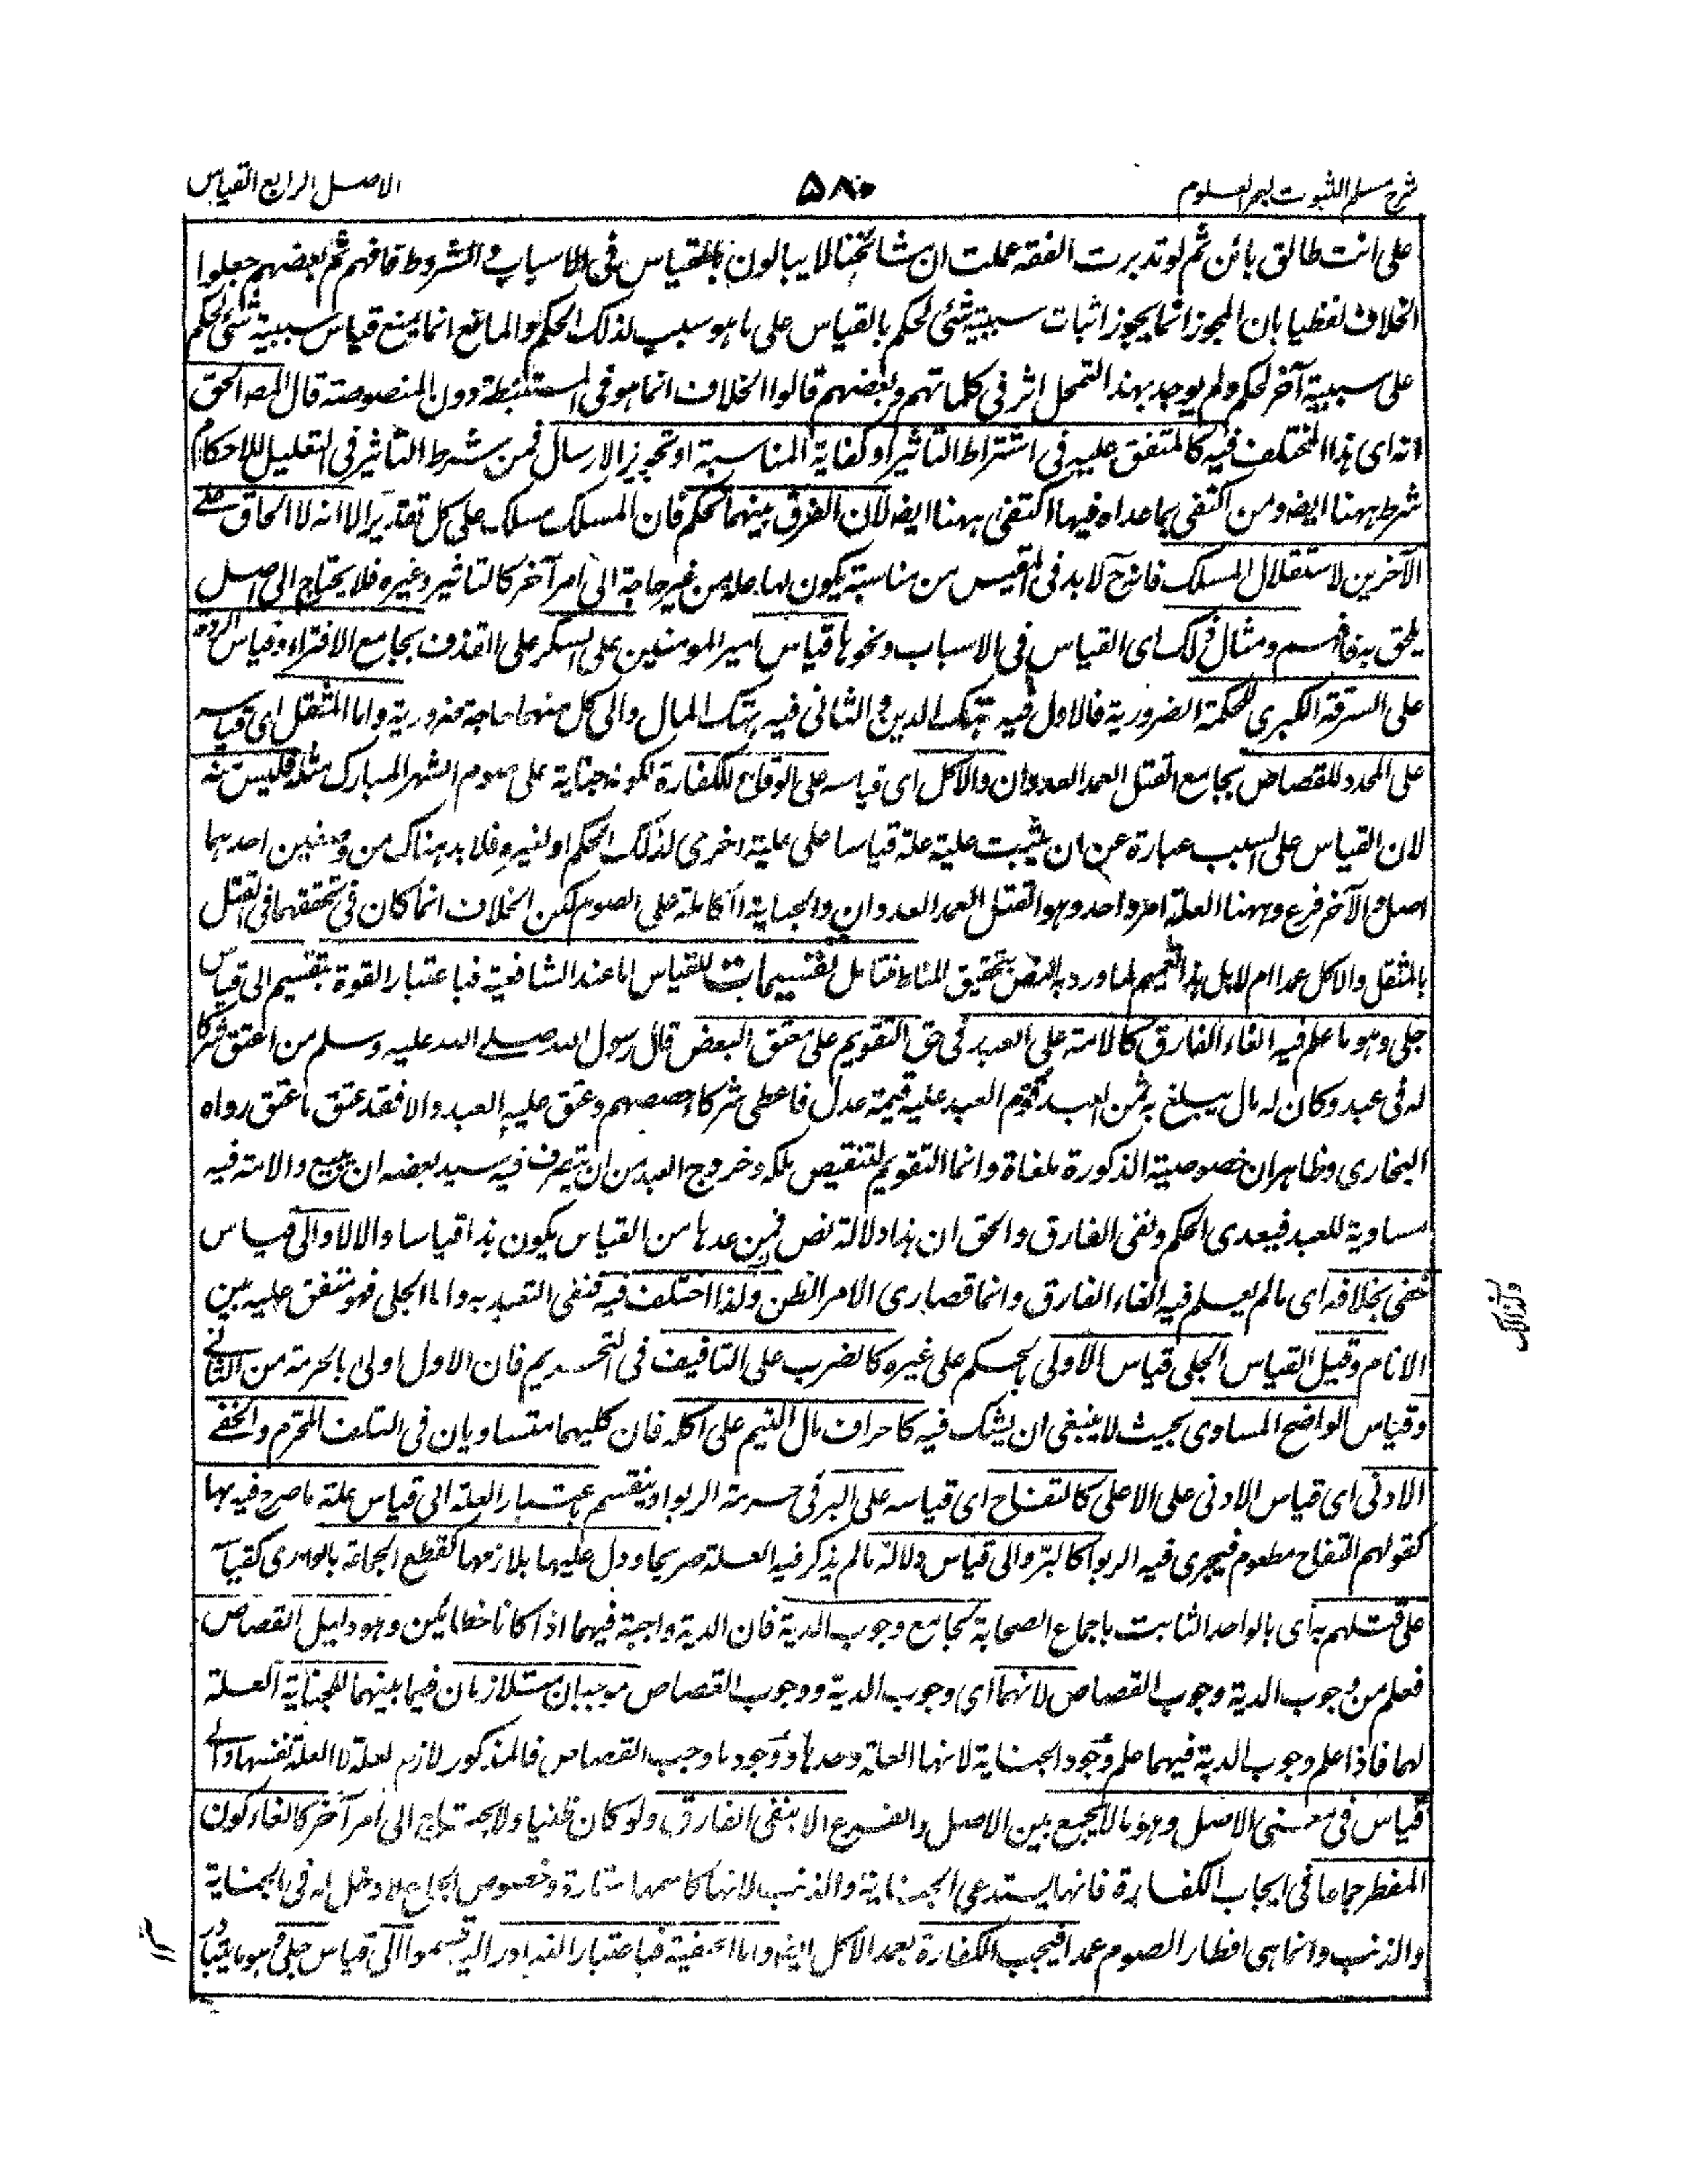 شرح مسلم الثبوت لبحر العلوم
۵۸۰
الاصل الرابع القياس
على انت طالق بائن ثم لو تدبرت الفقه علمت ان مشائخنا لا يبالون بالقياس فى الاسباب والشروط فافهم ثم بعضهم جعلوا
الخلاف لفظيا بان المجوز انما يجوز اثبات سببية شئى لحكم بالقياس على ما هو سبب لذلك الحكم والمانع انما يمنع قياس سببية شئى لحكم
على سببية آخر لحكم ولم يوجد بهذا التمحل اثر فى كلماتهم وبعضهم قالوا الخلاف انما هو فى المستنبطة دون المنصوصة قال المصـ الحق
انه اى هذا المختلف فيه كالمتفق عليه فى اشتراط التاثير او كفاية المناسبة او تجويز الارسال فمن شرط التاثير فى التعليل للاحكام
شرط ههنا ايضا ومن اكتفى بما عداه فيها اكتفى ههنا ايضا لان الفرق بينهما تحكم فان المسلك مسلك على كل تقدير الا انه لا الحاق على
الآخرين لاستقلال المسلك فانه ح لا بد فى المقيس من مناسبة يكون لها علة من غير حاجة الى امر آخر كالتاثير وغيره فلا يحتاج الى اصل
يلحق به فافهم ومثال ذلك اى القياس فى الاسباب ونحوها قياس امير المومنين على السكر على القذف بجامع الافتراء وقياس الردة
على السرقة الكبرى للحكمة الضرورية فالاول فيه هتك الدين والثانى فيه هتك المال والى كل منهما حاجة ضرورية واما المثقل اى قياسه
على المحدد للقصاص بجامع القتل العمد العدوان والاكل اى قياسه على الوقاع للكفارة لكونه جناية على صوم الشهر المبارك مثله فليس منه
لان القياس على السبب عبارة عن ان يثبت علية علة قياسا على علية اخرى لذلك الحكم او لغيره فلا بد هناك من وصفين احدهما
اصل والآخر فرع وههنا العلة امر واحد وهو القتل العمد العدوان والجناية الكاملة على الصوم لكن الخلاف انما كان فى تحققهما فى القتل
بالمثقل والاكل عمدا ام لا بل هذا لتعميم لما ورد به النص بتحقيق المناط فتامل تقسيمات للقياس اما عند الشافعية فباعتبار القوة ينقسم الى قياس
جلى وهو ما علم فيه الغاء الفارق كالامة على العبد فى حق التقويم على معتق البعض قال رسول الله صلى الله عليه وسلم من اعتق شركا
له فى عبد وكان له مال يبلغ به ثمن العبد قوم العبد عليه قيمة عدل فاعطى شركاءه حصصهم وعتق عليه العبد والا فقد عتق ما عتق رواه
البخارى وظاهر ان خصوصية الذكورة ملغاة وانما التقويم لتنقيص ملكه وخروج العبد من ان يتصرف فيه سيد بعضه ان يبيع والامة فيه
مساوية للعبد فيعدى الحكم ونفى الفارق والحق ان هذا دلالة نص فمن عدها من القياس يكون هذا قياسا والا لا والى قياس
خفى بخلافه اى ما لم يعلم فيه الغاء الفارق وانما قصارى الامر الظن ولذا اختلف فيه فنفى التعبد به واما الجلى فهو متفق عليه بين
الانام وقيل القياس الجلى قياس الاولى بالحكم على غيره كالضرب على التافيف فى التحريم فان الاول اولى بالحرمة من الثانى
وقياس الواضح المساوى بحيث لا ينبغى ان يشك فيه كاحراق مال اليتيم على اكله فان كليهما متساويان فى التلف المحرم والخفى
الادنى اى قياس الادنى على الاعلى كالتفاح اى قياسه على البر فى حرمة الربوا وينقسم باعتبار العلة الى قياس علة ما صرح فيه بها
كقولهم التفاح مطعوم فيجرى فيه الربوا كالبر والى قياس دلالة ما لم يذكر فيه العلة صريحا ودل عليها بلازمها كقطع الجماعة بالواحد كقياسا
على قتلهم به اى بالواحد الثابت باجماع الصحابة بجامع وجوب الدية فان الدية واجبة فيهما اذا كانا خطائين وهو دليل القصاص
فعلم من وجوب الدية وجوب القصاص لانهما اى وجوب الدية ووجوب القصاص موجبان متلازمان فيما بينهما للجناية العلة
لهما فاذا علم وجوب الدية فيهما علم وجود الجناية لانها العلة وحدها ووجود ما وجب القصاص فالمذكور لازم لعلة لا العلة نفسها والى
قياس فى معنى الاصل وهو ما لا يجمع بين الاصل والفرع الا بنفى الفارق ولو كان ظنيا ولا يحتاج الى امر آخر كالغاء كون
المفطر جماعا فى ايجاب الكفارة فانها يستدعى الجناية والذنب لانها كاسمها ستارة وخصوص الجماع لا دخل له فى الجناية
والذنب وانما هى افطار الصوم عمدا فيجب الكفارة بعمد الاكل ايضا واما الحنفية فباعتبار التبادر اليه قسموا الى قياس جلى هو ما يتبادر
ولذلك